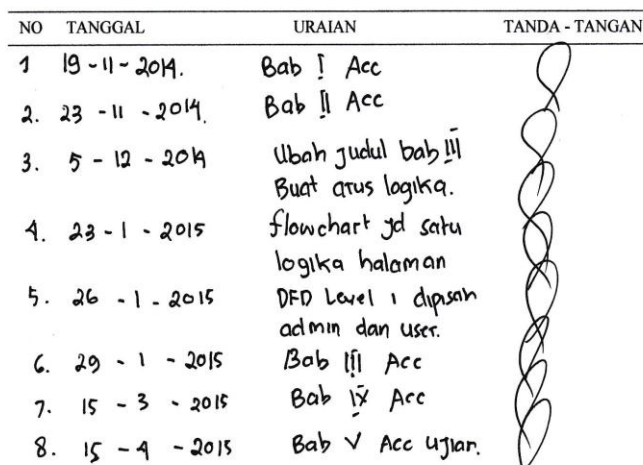 NO TANGGAL URAIAN TANDA - TANGAN
1 19-11-2014. Bab I Acc
2. 23-11-2014. Bab II Acc
3. 5-12-2014 Ubah judul bab III
Buat arus logika.
4. 23-1-2015 flowchart jd satu
logika halaman
5. 26-1-2015 DFD Level 1 dipisah
admin dan user.
6. 29-1-2015 Bab III Acc
7. 15-3-2015 Bab IV Acc
8. 15-4-2015 Bab V Acc Ujian.